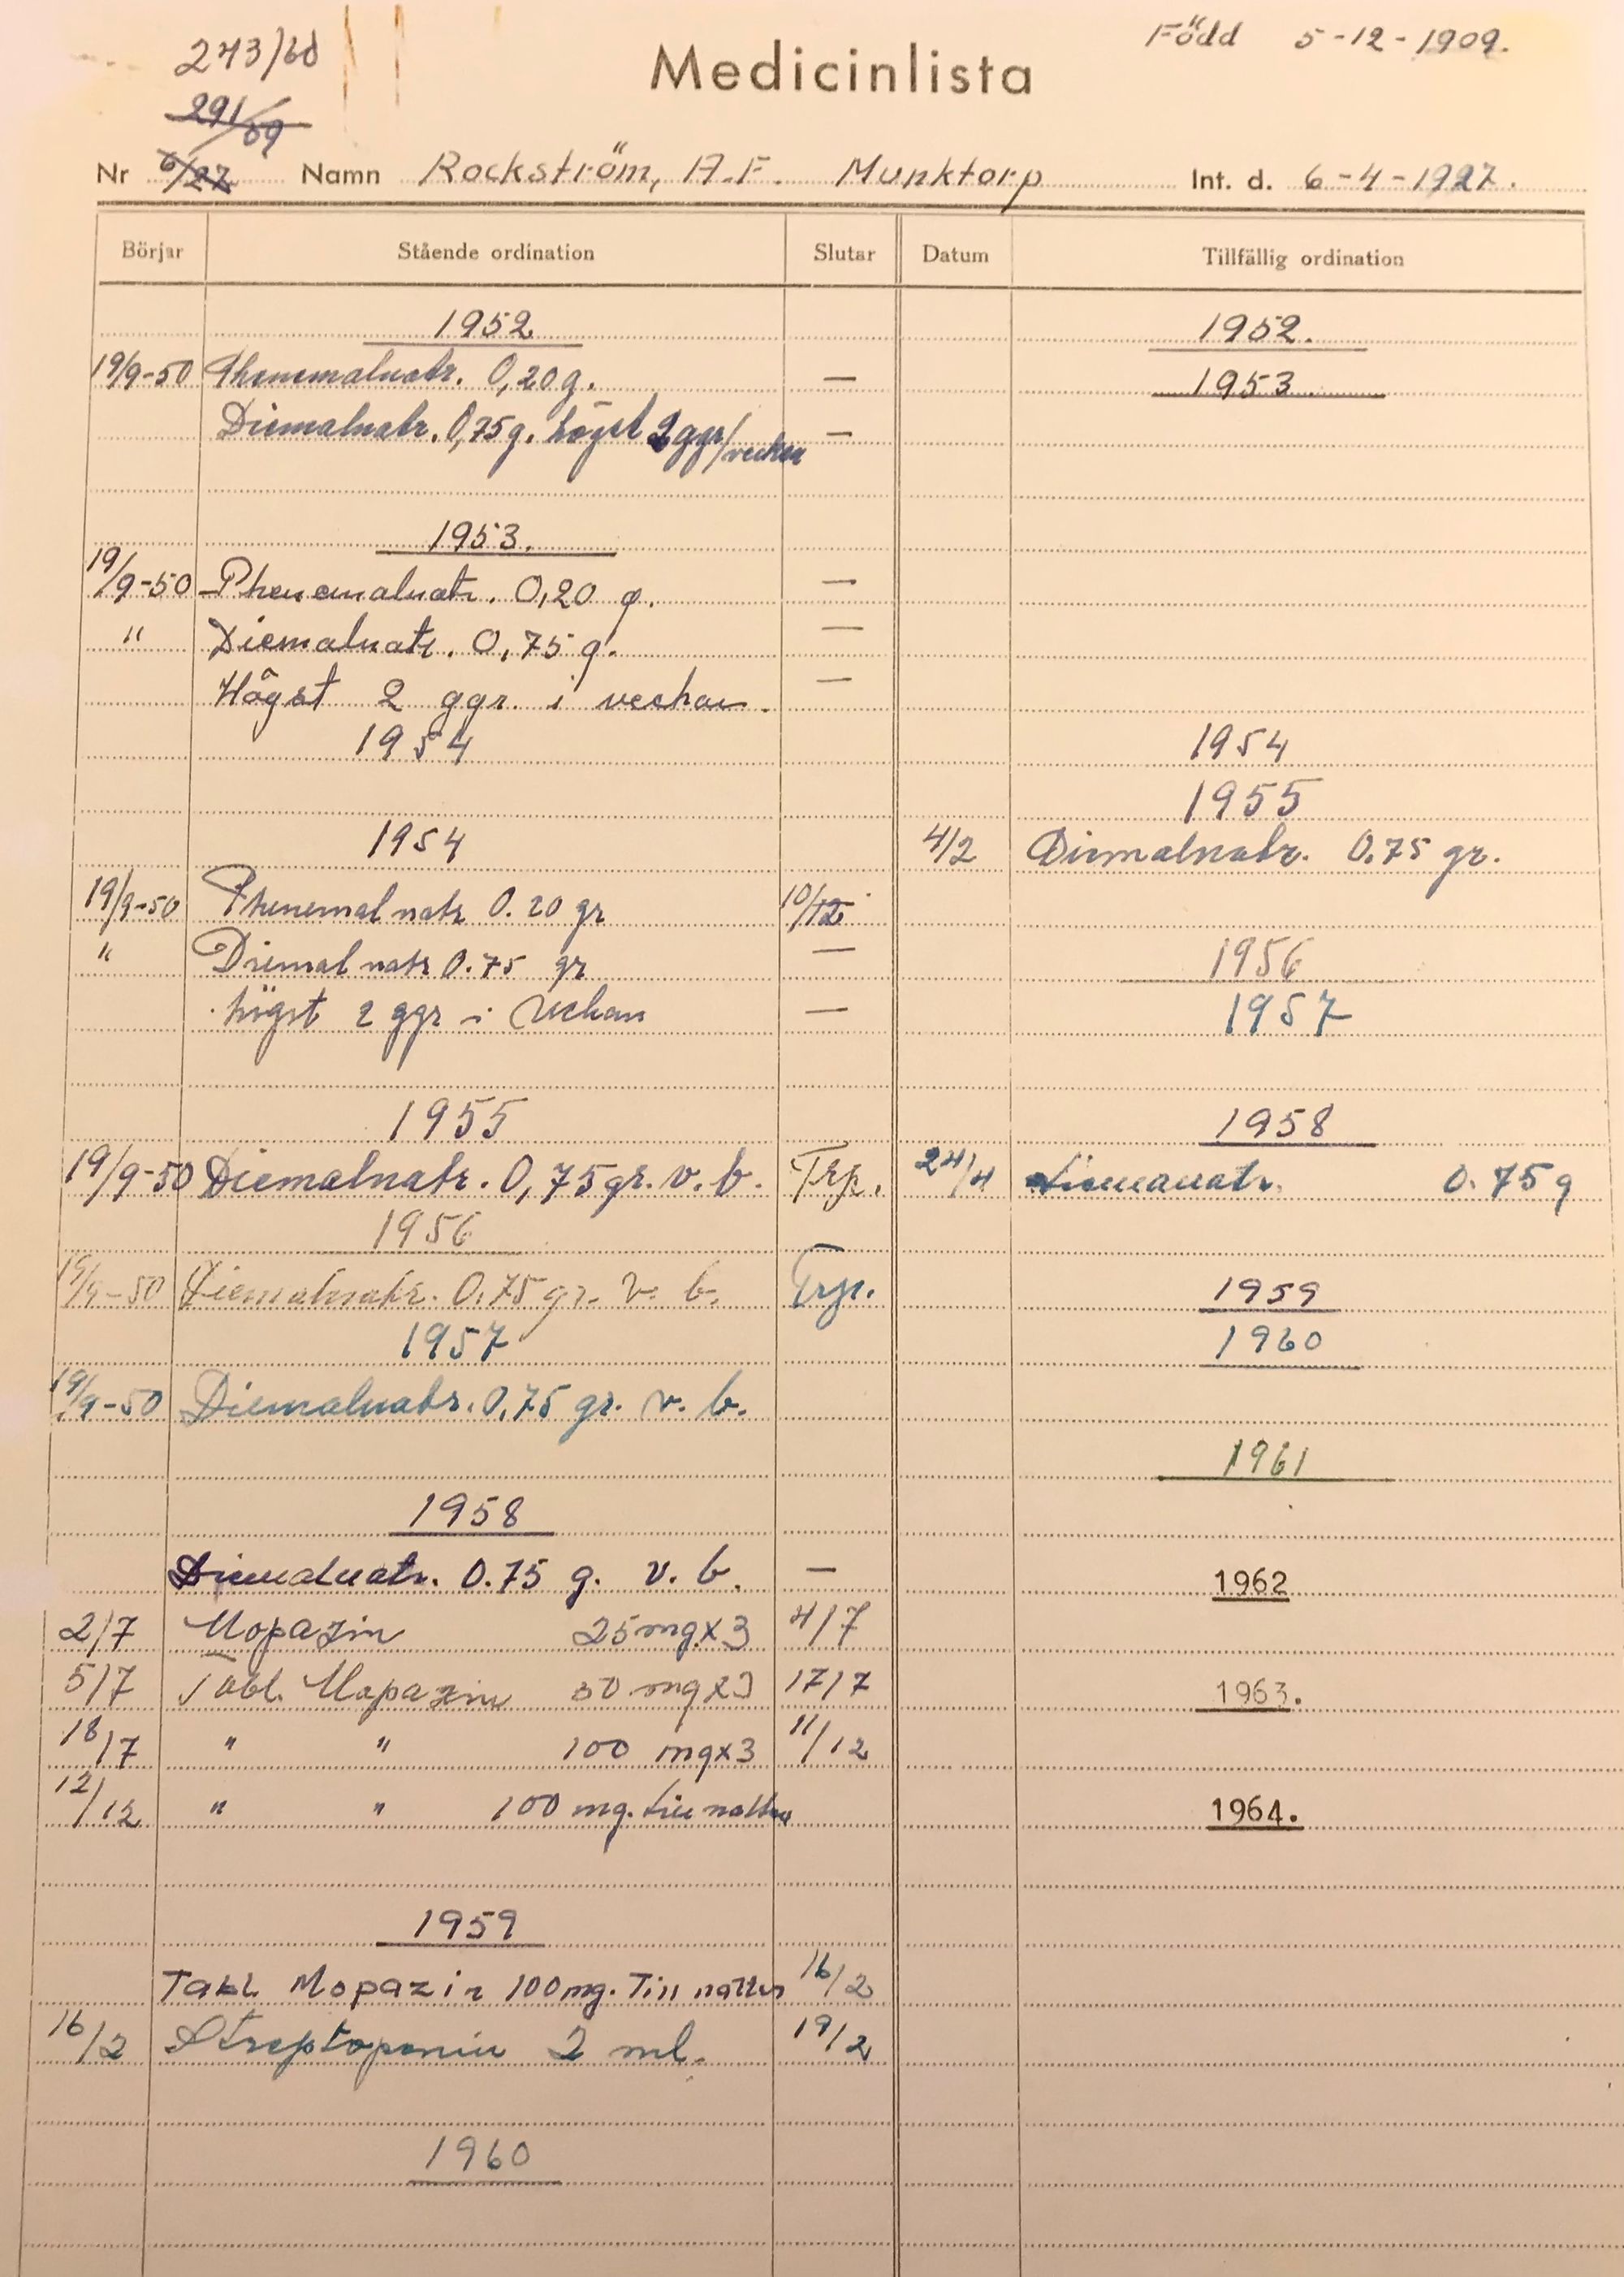 243/60
Medicinlista
Född 5-12-1909.
291/69
Nr 6/27 Namn Rockström, A.F. Munktorp Int. d. 6-4-1927.
Börjar Stående ordination Slutar Datum Tillfällig ordination
1952 1952.
19/9-50 Phenemalnatr. 0,20 g. — 1953
Diemalnatr. 0,75 g. högst 2 ggr/veckan —
1953.
19/9-50 Phenemalnatr. 0,20 g. —
" Diemalnatr. 0,75 g. —
Högst 2 ggr. i veckan. —
1954 1954
1955
1954 4/2 Diemalnatr. 0.75 gr.
19/9-50 Phenemalnatr 0.20 gr 10/12
" Diemalnatr 0.75 gr — 1956
högst 2 ggr i veckan — 1957
1955 1958
19/9-50 Diemalnatr. 0,75 gr. v. b. Trp. 24/4 Diemalnatr. 0.75 g
1956
19/9-50 Diemalnatr. 0,75 gr. v. b. Trp. 1959
1957 1960
19/9-50 Diemalnatr. 0,75 gr. v. b.
1961
1958
Diemalnatr. 0.75 g. v. b. — 1962
2/7 Mopazin 25 mg x 3 4/7
5/7 Tabl. Mopazin 50 mg x 3 17/7 1963.
18/7 " " 100 mg x 3 11/12
12/12 " " 100 mg. till natten 1964.
1959
Tabl. Mopazin 100 mg. Till natten 16/2
16/2 Streptopenin 2 ml. 19/2
1960